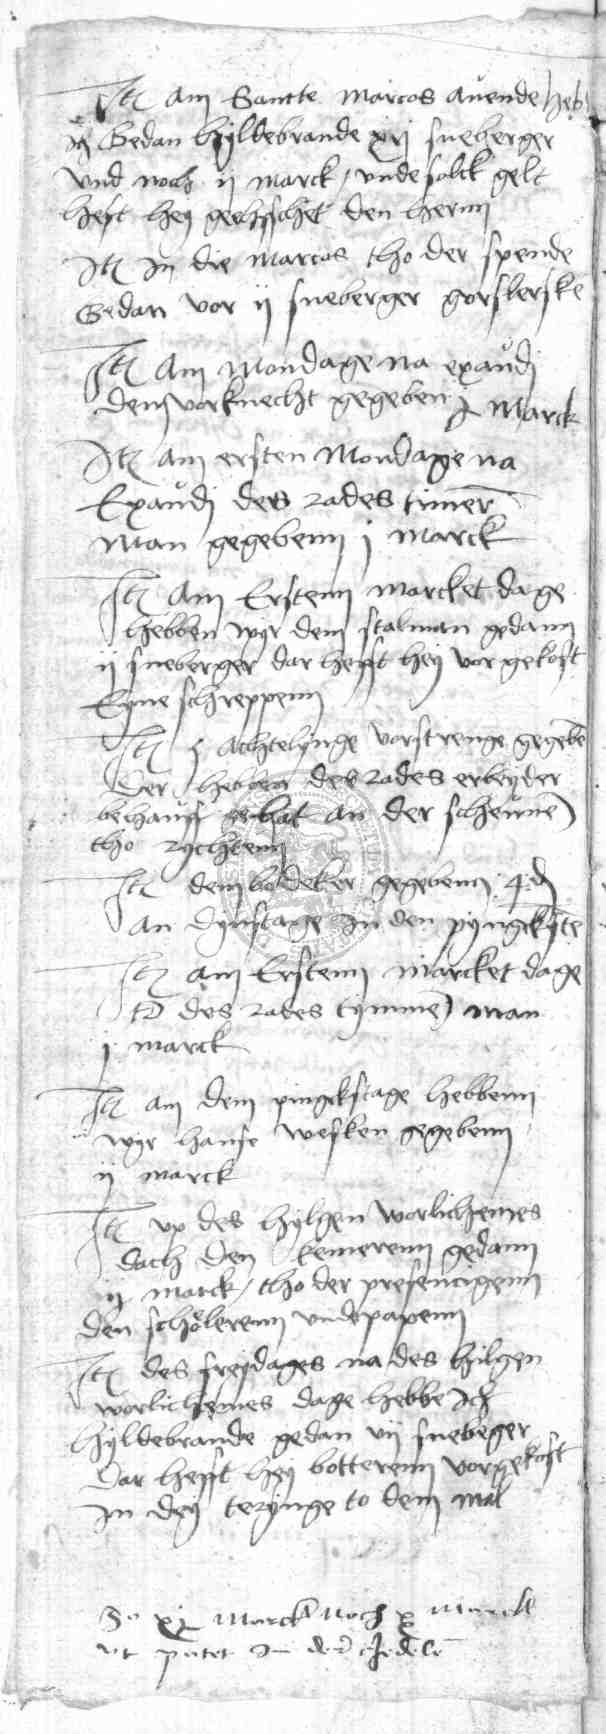 Itē am Sancte Marcos auende heb
ick Gedan hyldebrande xvj sneberger
vnd noch ij marck / vnde solck gelt
heft hey geesschet den hernn
Itē In die Marcos tho der spende
Gedan vor ij sneberger gorslerske
Itē Am Mondage na exaudj
dem vorknecht gegeben j Marck
Itē am ersten Mondage na
Exaudj des rades timer
man gegebenn j marck
Itē Am Erstenn marcket dage
hebben wyr dem stalman gedann
ij sneberger dar hefft hey vor gekoft
Eyne schreppenn
Itē j achtelynge vorstrenge gegebē
der hebben des rades erbeyder
behauff gehat an der scheunē
tho rychtenn
Itē dem bodeker gegebenn 4 d
an dynstage In den pyngkste
Itē am Erstenn marcket dage
to des rades tymmē man
j marck
Itē am dem pingckstage hebbenn
wyr hanse wesken gegebenn
ij marck
Itē vp des hylgen worlichemes
dach den kemerenn gedann
iij marck / tho der presencigenn
den schölerenn vnde papenn
Itē des frejdages na des hilgen
worlichemes dage hebbe ick
hyldebrande gedan vij snebeger
dar hefft hey botterenn vorgekoft
In dey terynge to dem mal
xj Marck Noch x Marck
vt patet